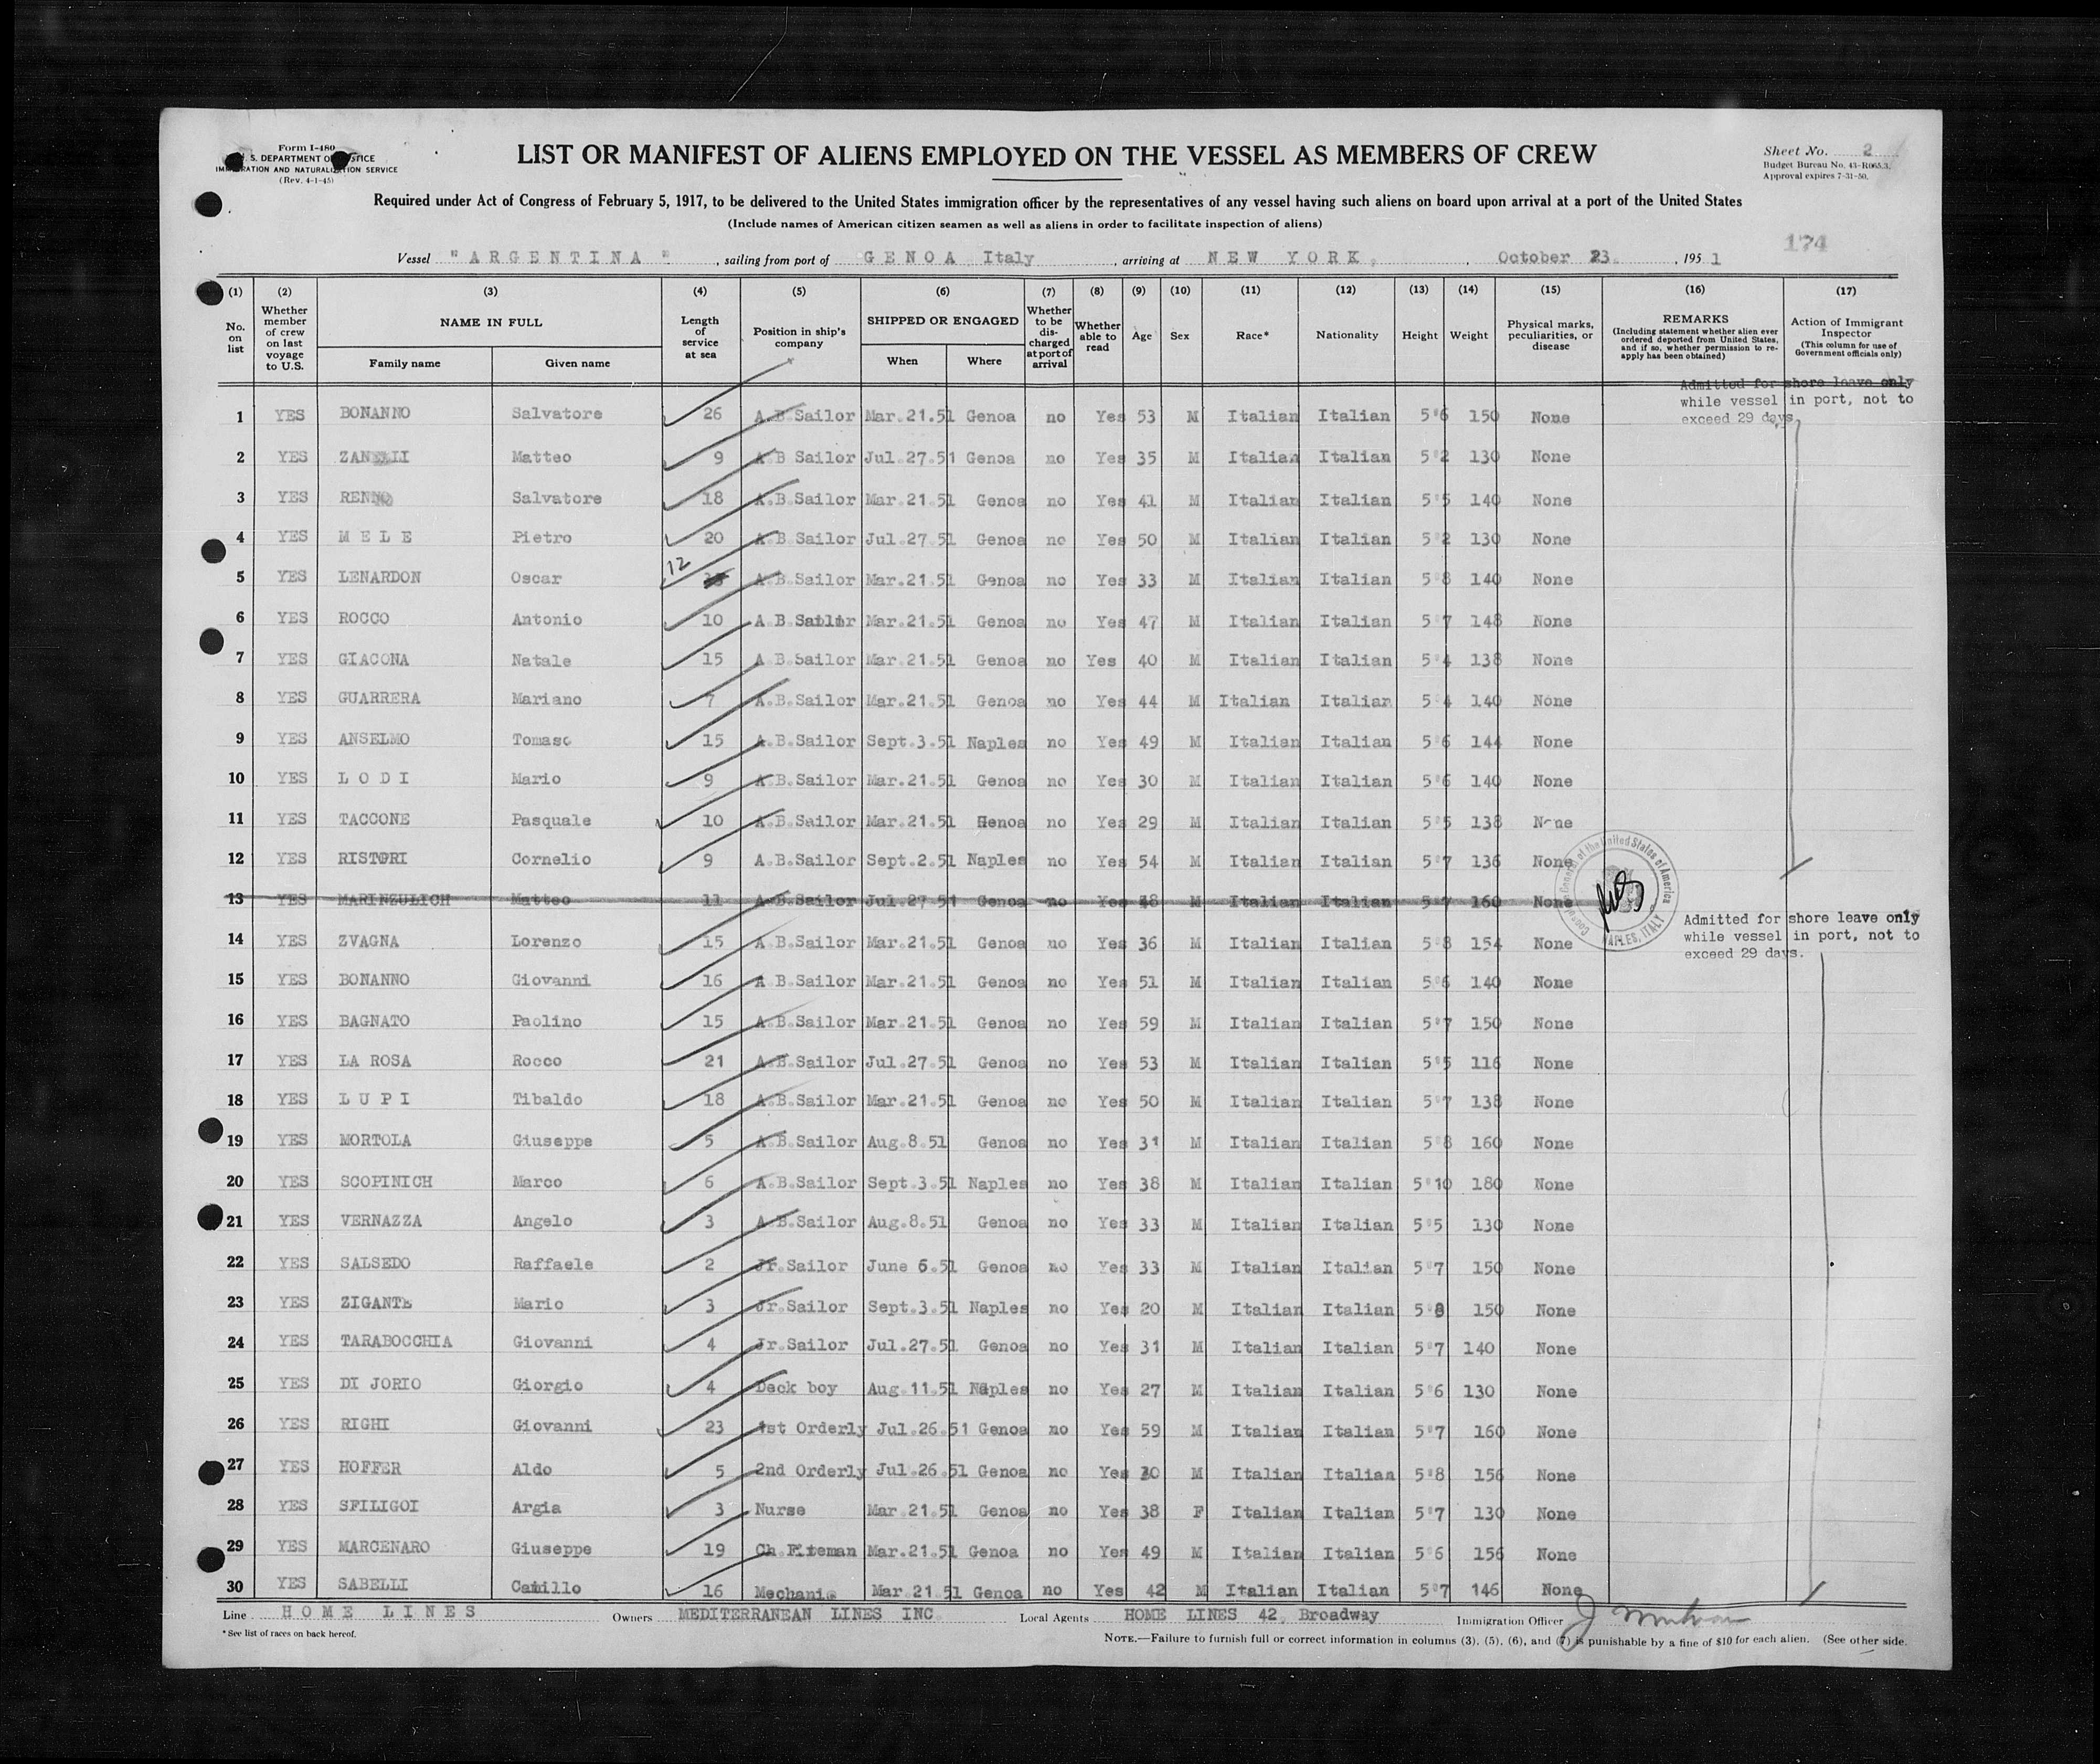 Form I-480
U. S. DEPARTMENT OF JUSTICE
IMMIGRATION AND NATURALIZATION SERVICE
(Rev. 4-1-45)
LIST OR MANIFEST OF ALIENS EMPLOYED ON THE VESSEL AS MEMBERS OF CREW
Sheet No. 2
Budget Bureau No. 43-R065.3.
Approval expires 7-31-50.
Required under Act of Congress of February 5, 1917, to be delivered to the United States immigration officer by the representatives of any vessel having such aliens on board upon arrival at a port of the United States
(Include names of American citizen seamen as well as aliens in order to facilitate inspection of aliens)
174
Vessel "ARGENTINA", sailing from port of GENOA Italy, arriving at NEW YORK, October 23, 1951
(1) (2) (3) (4) (5) (6) (7) (8) (9) (10) (11) (12) (13) (14) (15) (16) (17)
No. on list
Whether member of crew on last voyage to U.S.
NAME IN FULL
Family name
Given name
Length of service at sea
Position in ship's company
SHIPPED OR ENGAGED
When
Where
Whether to be discharged at port of arrival
Whether able to read
Age
Sex
Race*
Nationality
Height
Weight
Physical marks, peculiarities, or disease
REMARKS
(Including statement whether alien ever ordered deported from United States, and if so, whether permission to reapply has been obtained)
Action of Immigrant Inspector
(This column for use of Government officials only)
Admitted for shore leave only
while vessel in port, not to
exceed 29 days.
1 YES BONANNO Salvatore 26 A.B.Sailor Mar.21.51 Genoa no Yes 53 M Italian Italian 5"6 150 None
2 YES ZANELLI Matteo 9 A.B Sailor Jul.27.51 Genoa no Yes 35 M Italian Italian 5"2 130 None
3 YES RENNO Salvatore 18 A.B.Sailor Mar.21.51 Genoa no Yes 41 M Italian Italian 5"5 140 None
4 YES M E L E Pietro 20 A.B.Sailor Jul.27.51 Genoa no Yes 50 M Italian Italian 5"2 130 None
5 YES LENARDON Oscar 12 A.B.Sailor Mar.21.51 Genoa no Yes 33 M Italian Italian 5"8 140 None
6 YES ROCCO Antonio 10 A.B.Sailor Mar.21.51 Genoa no Yes 47 M Italian Italian 5"7 148 None
7 YES GIACONA Natale 15 A.B.Sailor Mar.21.51 Genoa no Yes 40 M Italian Italian 5"4 138 None
8 YES GUARRERA Mariano 7 A.B.Sailor Mar.21.51 Genoa no Yes 44 M Italian Italian 5"4 140 None
9 YES ANSELMO Tomaso 15 A.B.Sailor Sept.3.51 Naples no Yes 49 M Italian Italian 5"6 144 None
10 YES L O D I Mario 9 A.B.Sailor Mar.21.51 Genoa no Yes 30 M Italian Italian 5"6 140 None
11 YES TACCONE Pasquale 10 A.B.Sailor Mar.21.51 Genoa no Yes 29 M Italian Italian 5"5 138 None
12 YES RISTORI Cornelio 9 A.B.Sailor Sept.2.51 Naples no Yes 54 M Italian Italian 5"7 136 None
13 YES MARINZULICH Matteo 11 A.B.Sailor Jul.27.51 Genoa no Yes 48 M Italian Italian 5"7 160 None
Consulate General of the United States of America
NAPLES, ITALY
Admitted for shore leave only
while vessel in port, not to
exceed 29 days.
14 YES ZVAGNA Lorenzo 15 A.B.Sailor Mar.21.51 Genoa no Yes 36 M Italian Italian 5"8 154 None
15 YES BONANNO Giovanni 16 A.B.Sailor Mar.21.51 Genoa no Yes 51 M Italian Italian 5"6 140 None
16 YES BAGNATO Paolino 15 A.B.Sailor Mar.21.51 Genoa no Yes 59 M Italian Italian 5"7 150 None
17 YES LA ROSA Rocco 21 A.B.Sailor Jul.27.51 Genoa no Yes 53 M Italian Italian 5"5 116 None
18 YES L U P I Tibaldo 18 A.B.Sailor Mar.21.51 Genoa no Yes 50 M Italian Italian 5"7 138 None
19 YES MORTOLA Giuseppe 5 A.B.Sailor Aug.8.51 Genoa no Yes 31 M Italian Italian 5"8 160 None
20 YES SCOPINICH Marco 6 A.B.Sailor Sept.3.51 Naples no Yes 38 M Italian Italian 5"10 180 None
21 YES VERNAZZA Angelo 3 A.B.Sailor Aug.8.51 Genoa no Yes 33 M Italian Italian 5"5 130 None
22 YES SALSEDO Raffaele 2 Jr.Sailor June 6.51 Genoa no Yes 33 M Italian Italian 5"7 150 None
23 YES ZIGANTE Mario 3 Jr.Sailor Sept.3.51 Naples no Yes 20 M Italian Italian 5"8 150 None
24 YES TARABOCCHIA Giovanni 4 Jr.Sailor Jul.27.51 Genoa no Yes 31 M Italian Italian 5"7 140 None
25 YES DI JORIO Giorgio 4 Deck boy Aug.11.51 Naples no Yes 27 M Italian Italian 5"6 130 None
26 YES RIGHI Giovanni 23 1st Orderly Jul.26.51 Genoa no Yes 59 M Italian Italian 5"7 160 None
27 YES HOFFER Aldo 5 2nd Orderly Jul.26.51 Genoa no Yes 30 M Italian Italian 5"8 156 None
28 YES SFILIGOI Argia 3 Nurse Mar.21.51 Genoa no Yes 38 F Italian Italian 5"7 130 None
29 YES MARCENARO Giuseppe 19 Ch.Fireman Mar.21.51 Genoa no Yes 49 M Italian Italian 5"6 156 None
30 YES SABELLI Camillo 16 Mechanic Mar.21.51 Genoa no Yes 42 M Italian Italian 5"7 146 None
Line HOME LINES Owners MEDITERRANEAN LINES INC. Local Agents HOME LINES 42, Broadway Immigration Officer
*See list of races on back hereof.
NOTE.—Failure to furnish full or correct information in columns (3), (5), (6), and (7) is punishable by a fine of $10 for each alien. (See other side.